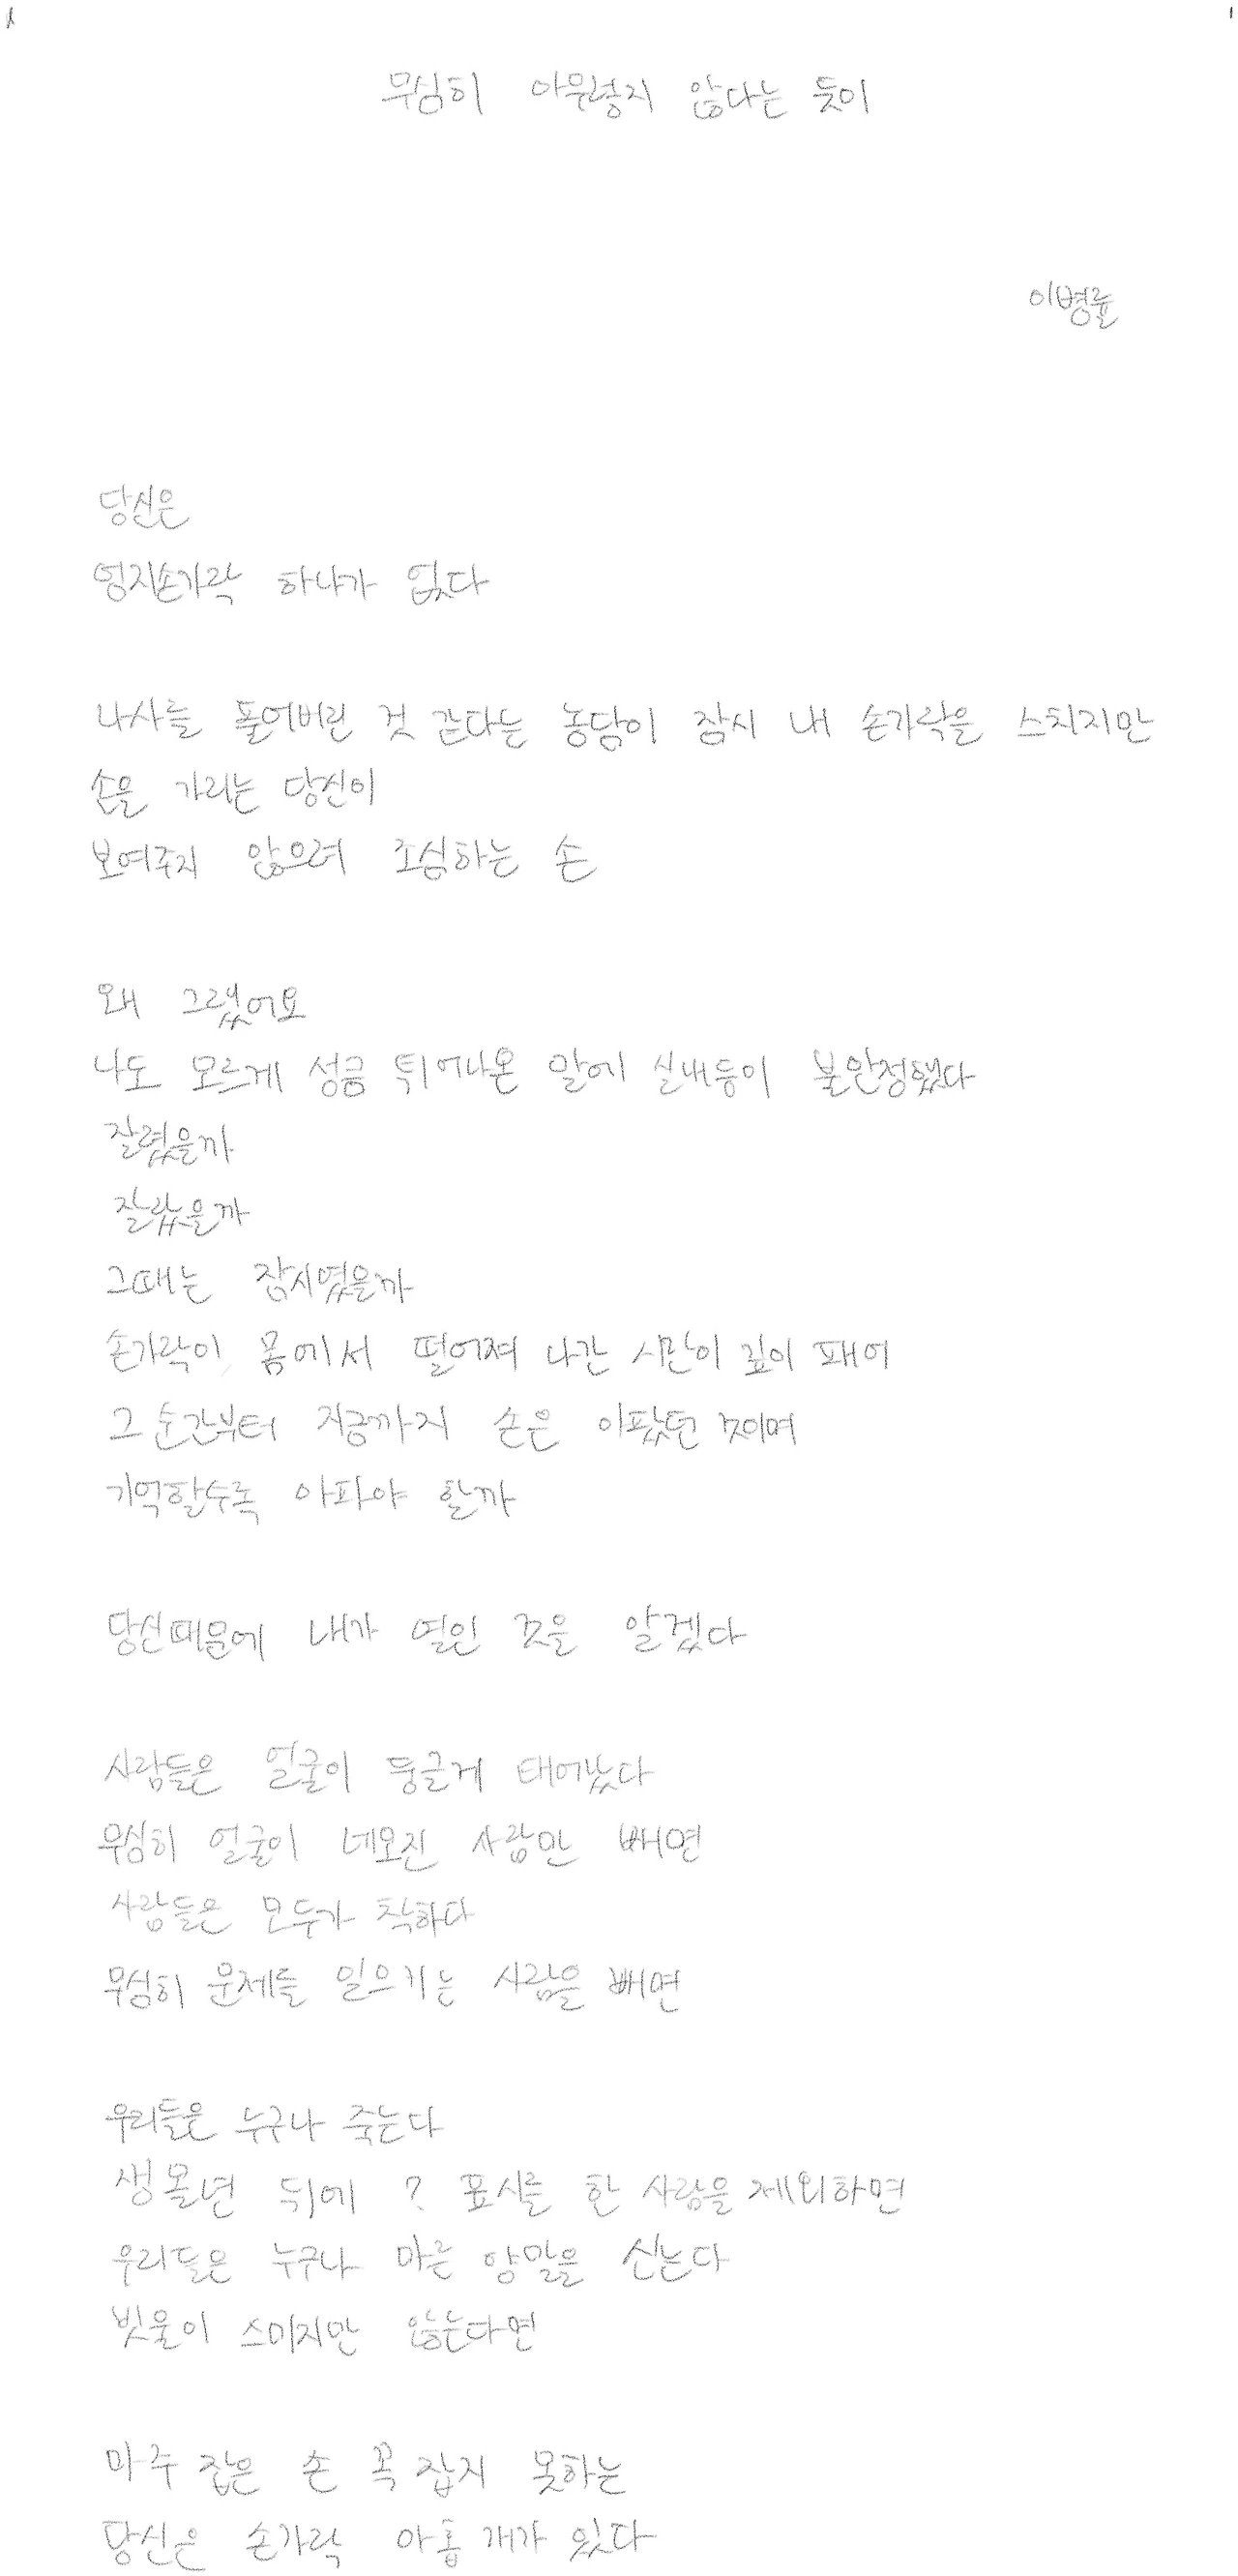 무심히 아무렇지 않다는 듯이
이병률
당신은
엄지손가락 하나가 없다
나사를 풀어버린 것 같다는 농담이 잠시 내 손가락을 스치지만
손을 가리는 당신이
보여주지 않으려 조심하는 손
왜 그랬어요
나도 모르게 성큼 튀어나온 말에 실내등이 불안정했다
잘렸을까
잘랐을까
그때는 잠시였을까
손가락이 몸에서 떨어져 나간 시간이 깊이 패어
그 순간부터 지금까지 손은 아팠던 것이며
기억할수록 아파야 할까
당신때문에 내가 열인 것을 알겠다
사람들은 얼굴이 둥글게 태어났다
무심히 얼굴이 네모진 사람만 빼면
사람들은 모두가 착하다
무심히 문제를 일으키는 사람을 빼면
우리들은 누구나 죽는다
생몰년 뒤에 ? 표시를 한 사람을 제외하면
우리들은 누구나 마른 양말을 신는다
빗물이 스미지만 않는다면
마주 잡은 손 꼭 잡지 못하는
당신은 손가락 아홉 개가 있다